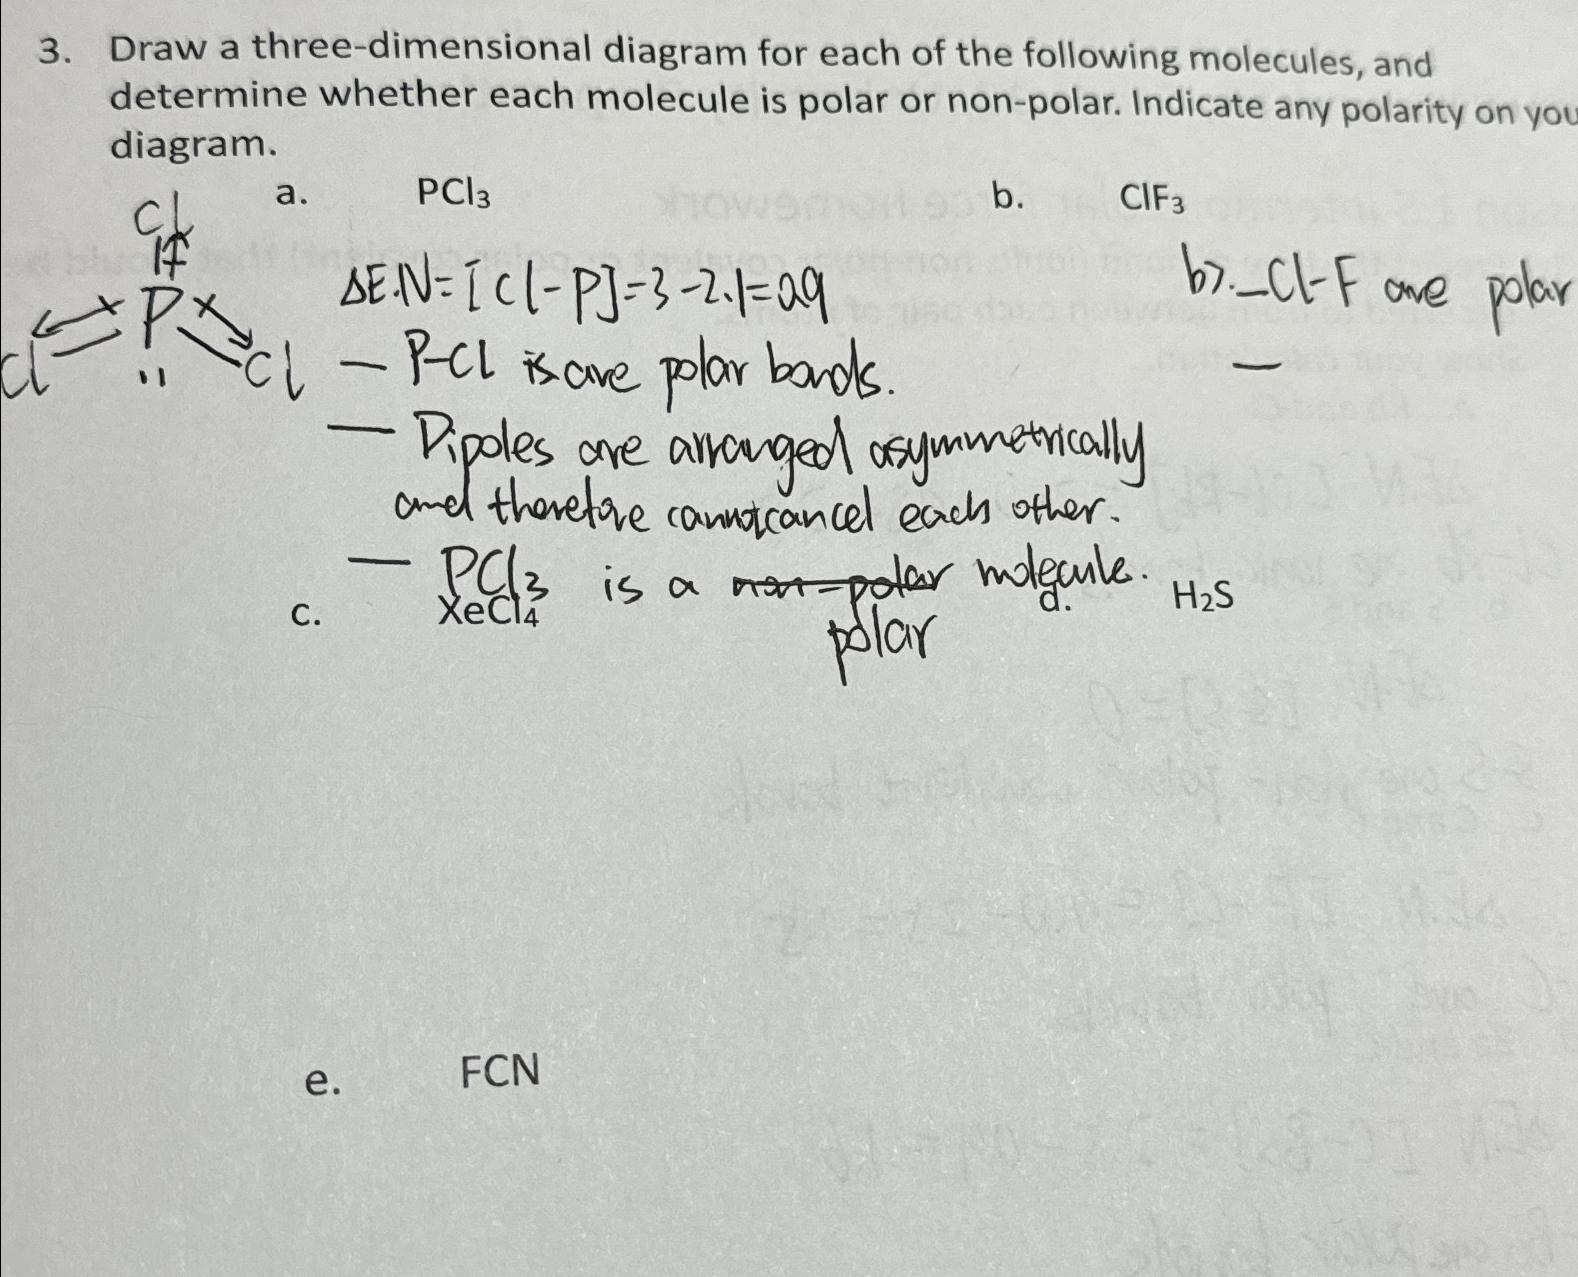 3. Draw a three-dimensional diagram for each of the following molecules, and
determine whether each molecule is polar or non-polar. Indicate any polarity on you
diagram.
a. PCl₃
b. ClF₃
Cl
P
Cl
Cl
ΔE.N=[Cl-P]=3-2.1=0.9
— P-Cl is are polar bonds.
— Dipoles are arranged asymmetrically
and therefore cannot cancel each other.
— PCl₃ is a non-polar molecule.
polar
b). -Cl-F are polar
—
c. XeCl₄
d. H₂S
e. FCN